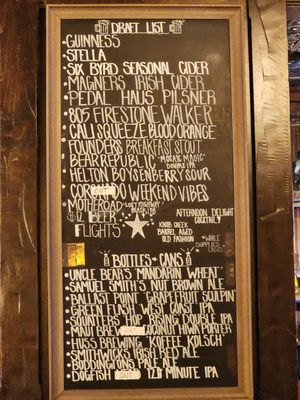 DRAFT LIST
• GUINNESS
• STELLA
• SIX BYRD SEASONAL CIDER
• MAGNERS IRISH CIDER
• PEDAL HAUS PILSNER
• 805 FIRESTONE WALKER
• CALI SQUEEZE BLOOD ORANGE
FOUNDERS BREAKFAST STOUT
• BEAR REPUBLIC "MOSAIC MAGIC"
DOUBLE IPA
• HELTON BOYSENBERRY SOUR
• COR WEEKEND VIBES
• MOTHEROAD "LOST HIGHWAY"
BLACK IPA
BEER
FLIGHTS
AFTERNOON DELIGHT
COCKTAIL
KNOB CREEK
BARREL AGED
OLD FASHION
WHILE
SUPPLIES
LASTS
BOTTLES • CANS
• UNCLE BEAR'S MANDARIN WHEAT
• SAMUEL SMITH'S NUT BROWN ALE
• BALLAST POINT GRAPEFRUIT SCULPIN
• GREEN FLASH WEST COAST IPA
• SQUATTERS HOP RISING DOUBLE IPA
• MAUI BREW COCONUT HIWA PORTER
• HUSS BREWING "KOFFEE KOLSCH"
• SMITHWICKS IRISH RED ALE
• BODDINGTONS PALE ALE
• DOGFISH 120 MINUTE IPA